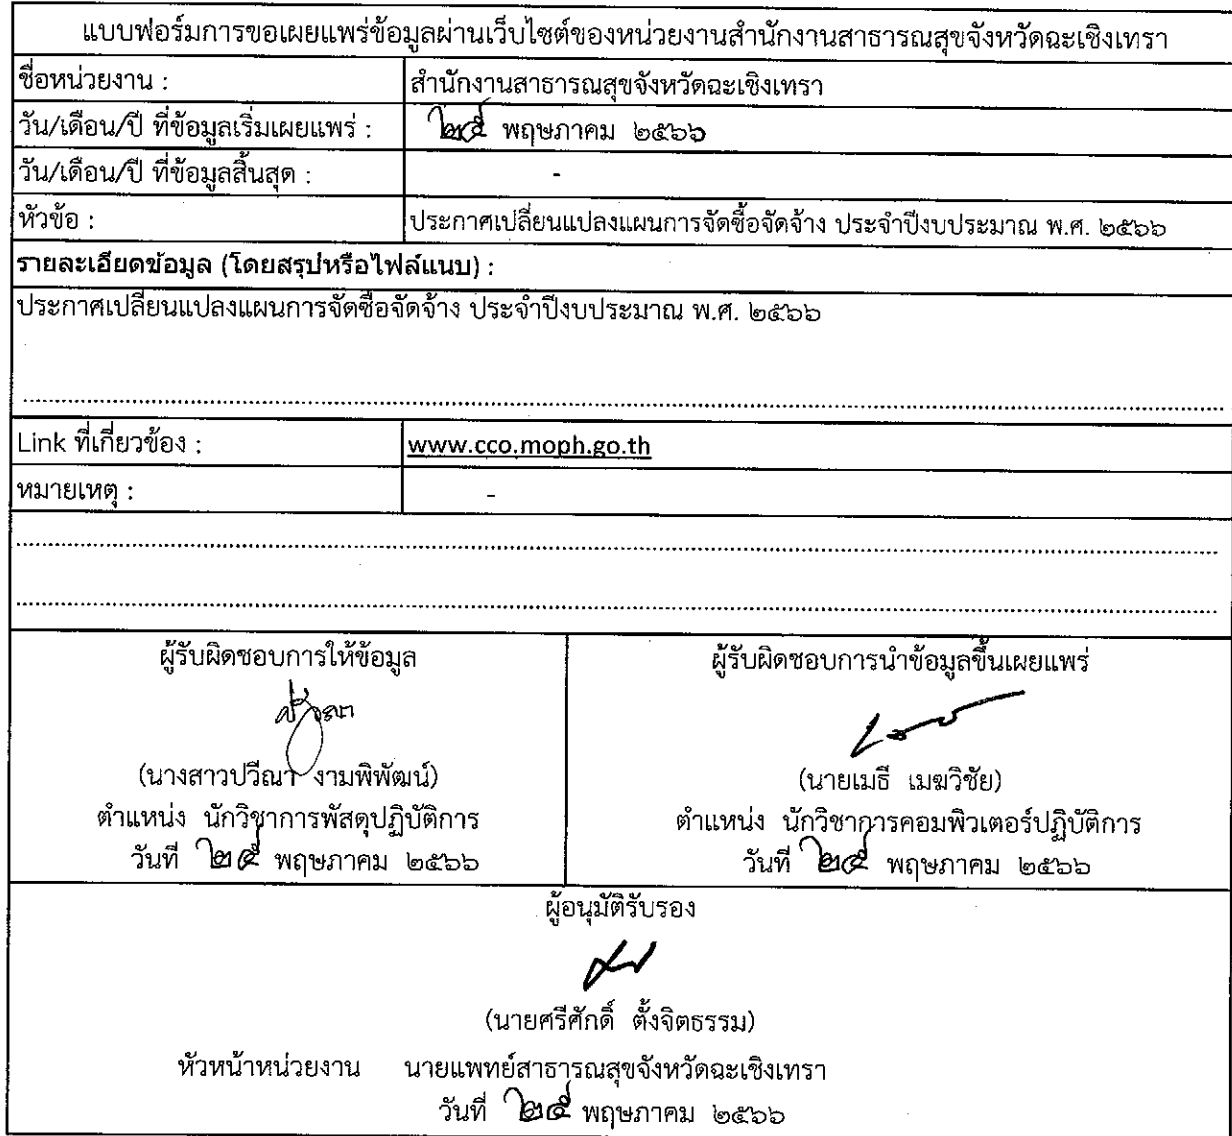 แบบฟอร์มการขอเผยแพร่ข้อมูลผ่านเว็บไซต์ของหน่วยงานสำนักงานสาธารณสุขจังหวัดฉะเชิงเทรา
ชื่อหน่วยงาน : สำนักงานสาธารณสุขจังหวัดฉะเชิงเทรา
วัน/เดือน/ปี ที่ข้อมูลเริ่มเผยแพร่ : ๒๕ พฤษภาคม ๒๕๖๖
วัน/เดือน/ปี ที่ข้อมูลสิ้นสุด : -
หัวข้อ : ประกาศเปลี่ยนแปลงแผนการจัดซื้อจัดจ้าง ประจำปีงบประมาณ พ.ศ. ๒๕๖๖
รายละเอียดข้อมูล (โดยสรุปหรือไฟล์แนบ) :
ประกาศเปลี่ยนแปลงแผนการจัดซื้อจัดจ้าง ประจำปีงบประมาณ พ.ศ. ๒๕๖๖
Link ที่เกี่ยวข้อง : www.cco.moph.go.th
หมายเหตุ : -
ผู้รับผิดชอบการให้ข้อมูล
ปวีณา
(นางสาวปวีณา งามพิพัฒน์)
ตำแหน่ง นักวิชาการพัสดุปฏิบัติการ
วันที่ ๒๕ พฤษภาคม ๒๕๖๖
ผู้รับผิดชอบการนำข้อมูลขึ้นเผยแพร่
(นายเมธี เมฆวิชัย)
ตำแหน่ง นักวิชาการคอมพิวเตอร์ปฏิบัติการ
วันที่ ๒๕ พฤษภาคม ๒๕๖๖
ผู้อนุมัติรับรอง
(นายศรีศักดิ์ ตั้งจิตธรรม)
หัวหน้าหน่วยงาน นายแพทย์สาธารณสุขจังหวัดฉะเชิงเทรา
วันที่ ๒๕ พฤษภาคม ๒๕๖๖